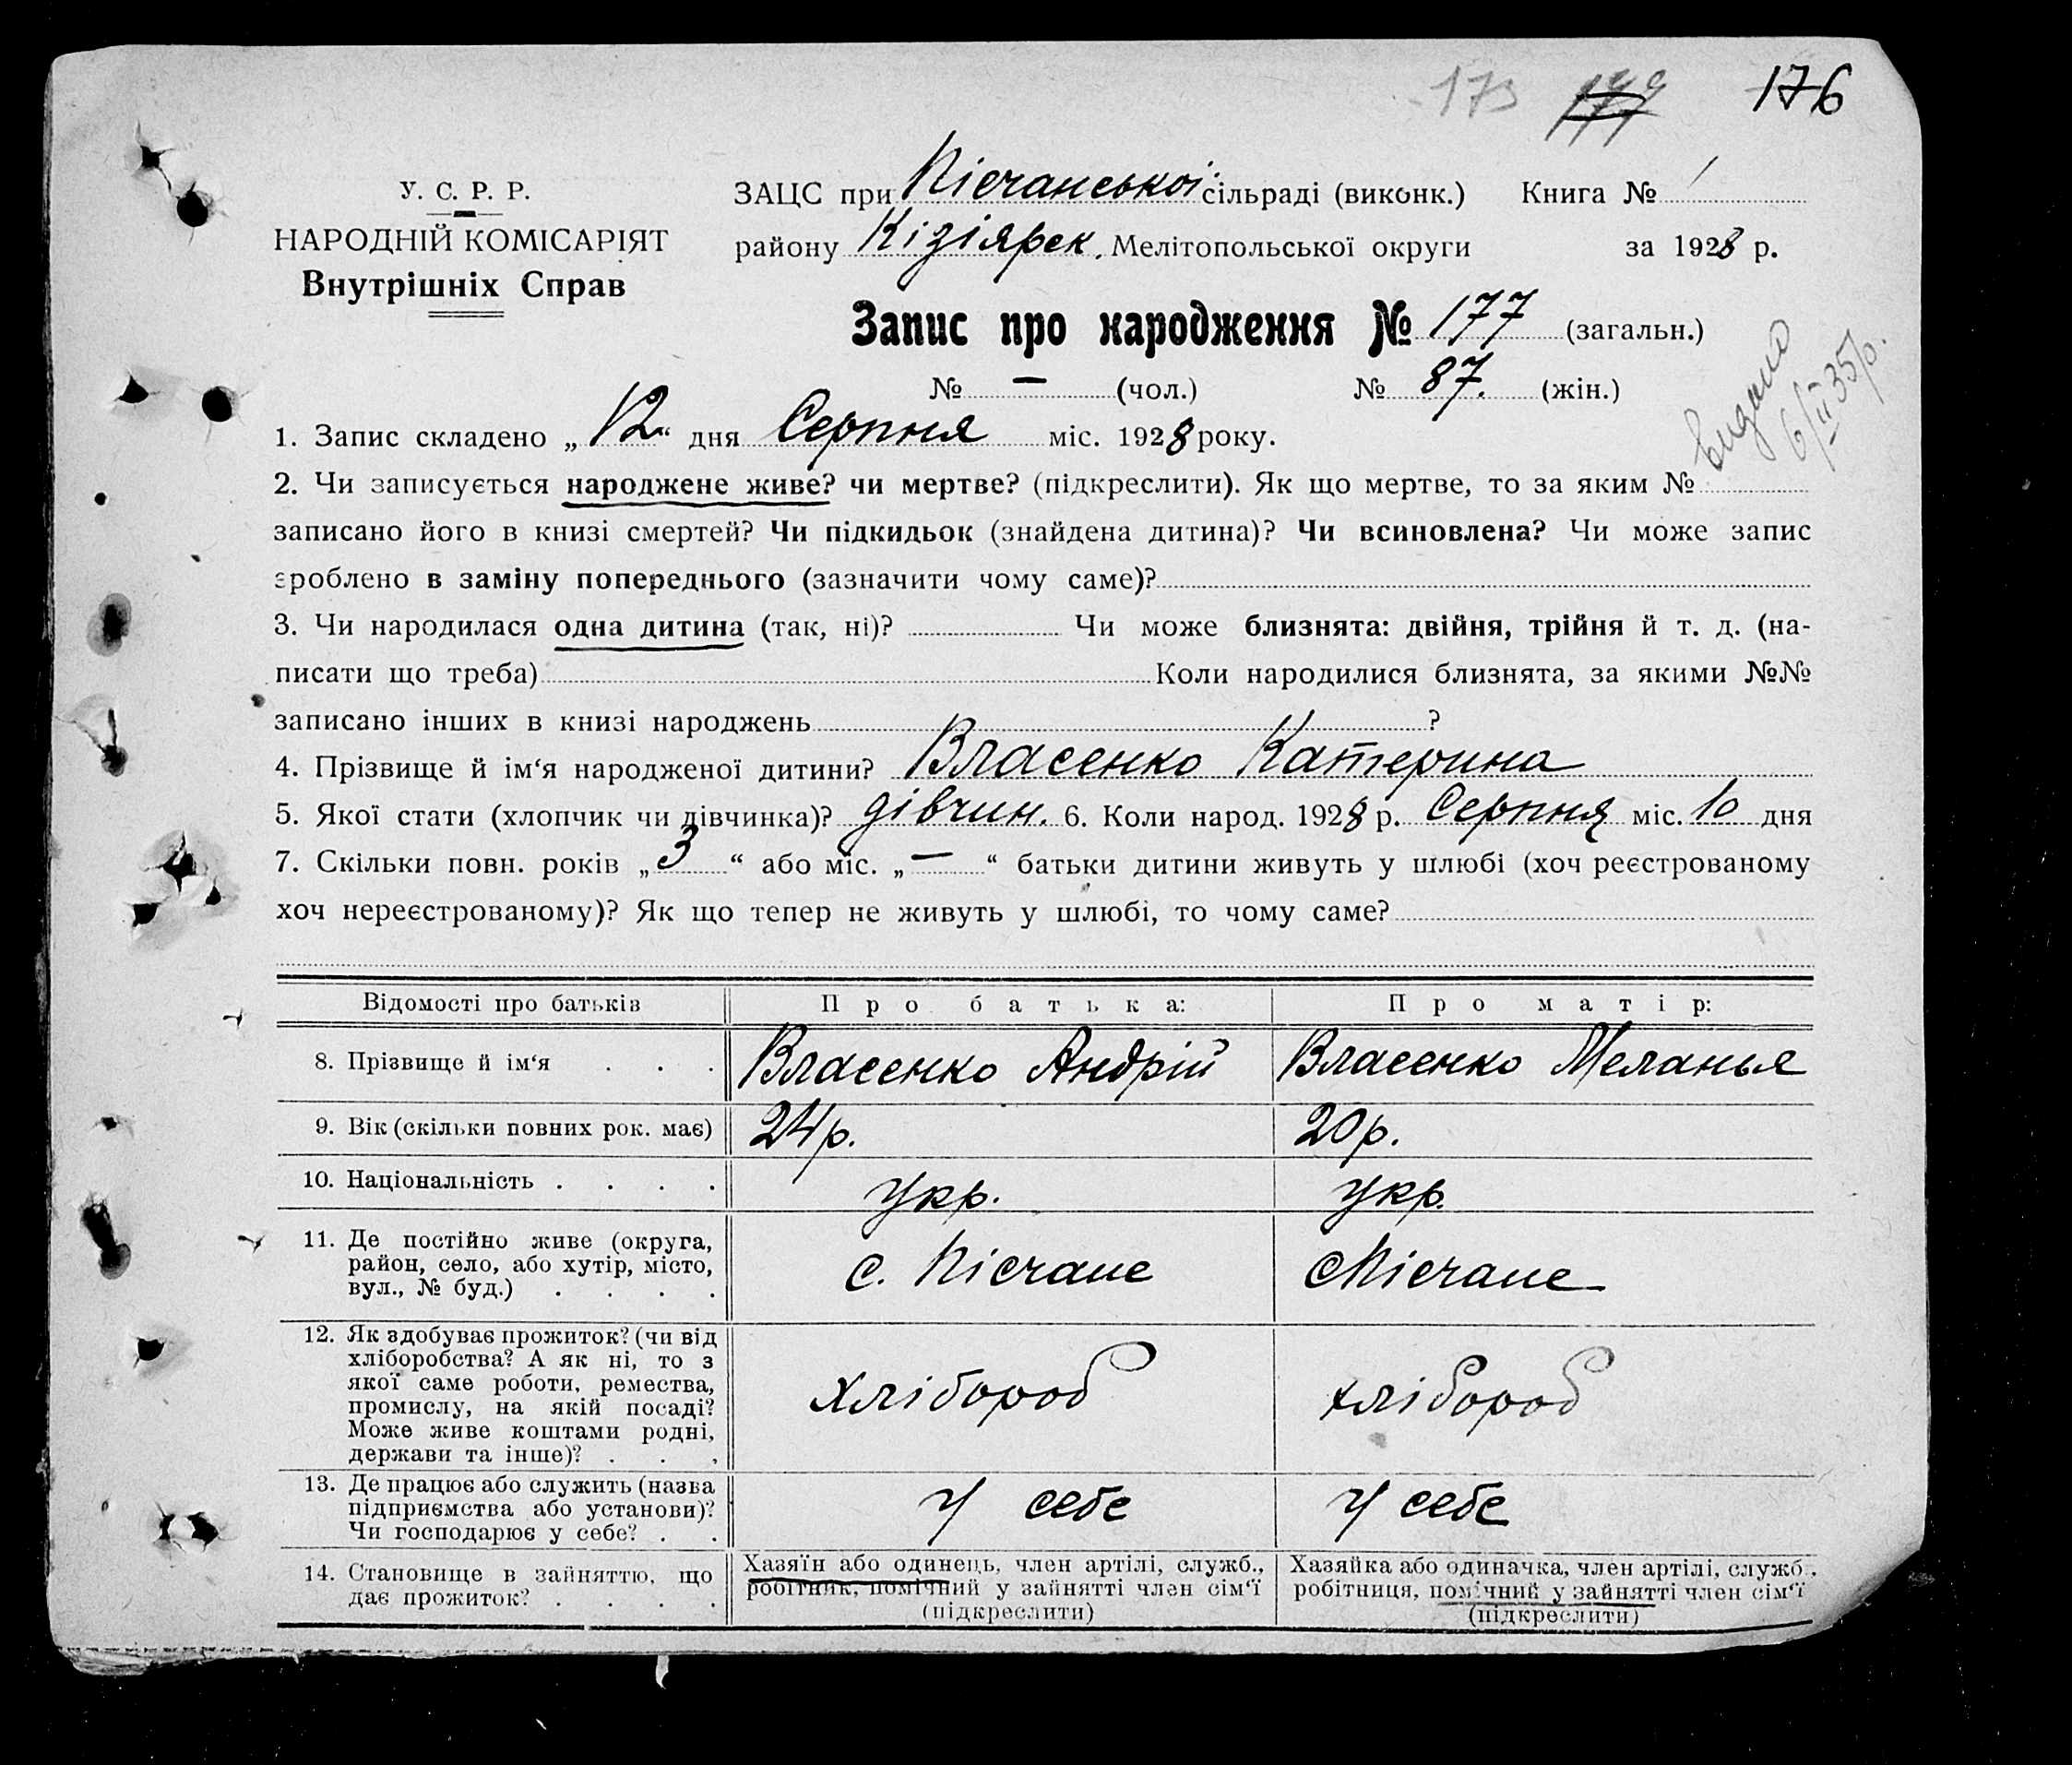 173 176
У. С. Р. Р.
НАРОДНІЙ КОМІСАРІЯТ
Внутрішніх Справ
ЗАЦС при Пісчанської сільраді (виконк.) Книга № 1
району Кізіярек. Мелітопольської округи за 1928 р.
Запис про народження № 177 (загальн.)
№ — (чол.) № 87. (жін.)
видано
6/II 35 р.
1. Запис складено „12“ дня Серпня міс. 1928 року.
2. Чи записується народжене живе? чи мертве? (підкреслити). Як що мертве, то за яким №
записано його в книзі смертей? Чи підкидьок (знайдена дитина)? Чи всиновлена? Чи може запис
зроблено в заміну попереднього (зазначити чому саме)?
3. Чи народилася одна дитина (так, ні)? Чи може близнята: двійня, трійня й т. д. (на-
писати що треба) Коли народилися близнята, за якими №№
записано інших в книзі народжень ?
4. Прізвище й ім‘я народженої дитини? Власенко Катерина
5. Якої стати (хлопчик чи дівчинка)? дівчин. 6. Коли народ. 1928 р. Серпня міс. 10 дня
7. Скільки повн. років „3“ або міс. „—“ батьки дитини живуть у шлюбі (хоч реєстрованому
хоч нереєстрованому)? Як що тепер не живуть у шлюбі, то чому саме?
Відомості про батьків Про батька: Про матір:
8. Прізвище й ім‘я . . . Власенко Андрій Власенко Меланья
9. Вік (скільки повних рок. має) 24 р. 20 р.
10. Національність . . . . укр. укр.
11. Де постійно живе (округа,
район, село, або хутір, місто,
вул., № буд.) . . . .
с. Пісчане с Пісчане
12. Як здобуває прожиток? (чи від
хліборобства? А як ні, то з
якої саме роботи, ремества,
промислу, на якій посаді?
Може живе коштами родні,
держави та інше)? . . .
хлібороб хлібороб
13. Де працює або служить (назва
підприємства або установи)?
Чи господарює у себе? . .
у себе у себе
14. Становище в зайняттю, що
дає прожиток? . . . .
Хазяїн або одинець, член артілі, служб.,
робітник, помічний у зайнятті член сім‘ї
(підкреслити)
Хазяйка або одиначка, член артілі, служб.,
робітниця, помічний у зайнятті член сім‘ї
(підкреслити)